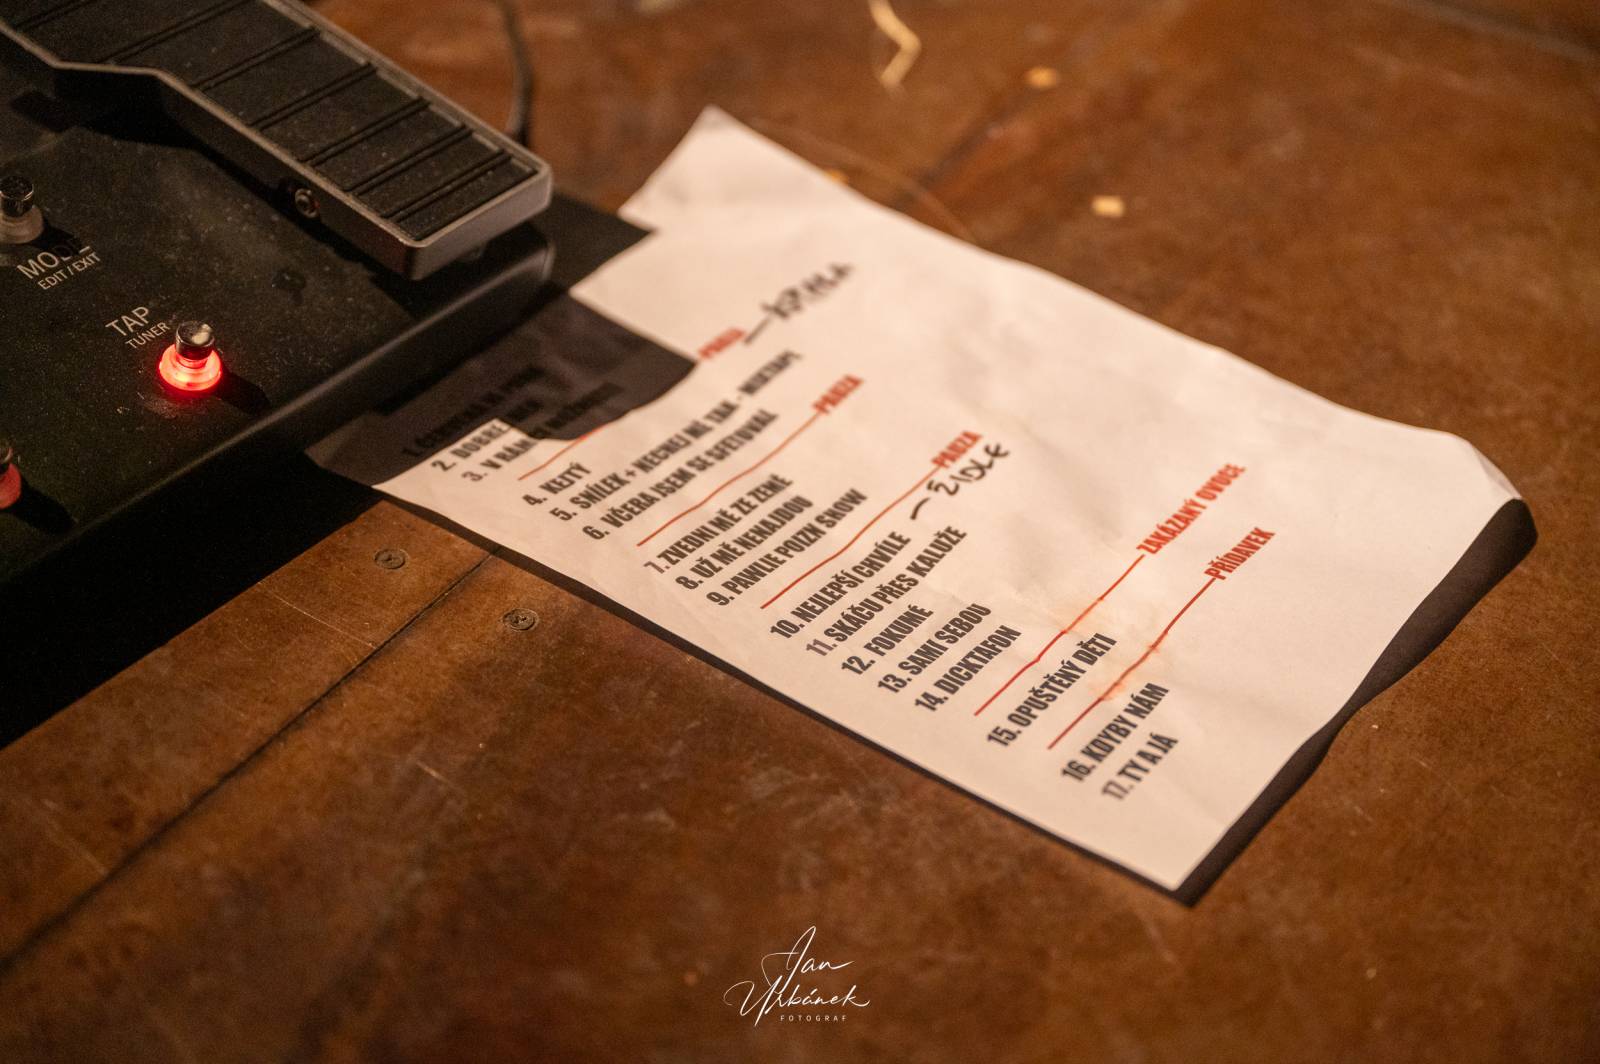 MODE
EDIT / EXIT
TAP
TUNER
1. ČERVENÁ
2. DOBRE DEN
3. V RÁMCI
PAUZA
4. KEJTÝ
5. SNÍLEK + NECHEJ MĚ TAK - MIXTAPE
6. VČERA JSEM SE SFETOVAL
PAUZA
7. ZVEDNI MĚ ZE ZEMĚ
8. UŽ MĚ NENAJDOU
9. PAWLIE POIZN SNOW
PAUZA
— ŽIDLE
10. NEJLEPŠÍ CHVÍLE
11. SKÁČU PŘES KALUŽE
12. FOKUNÉ
13. SAMI SEBOU
14. DICKTAFON
ZAKÁZANÝ OVOCE
15. OPUŠTĚNÝ DĚTI
PŘÍDAVEK
16. KDYBY NÁM
17. TY A JÁ
Jan
Urbánek
FOTOGRAF